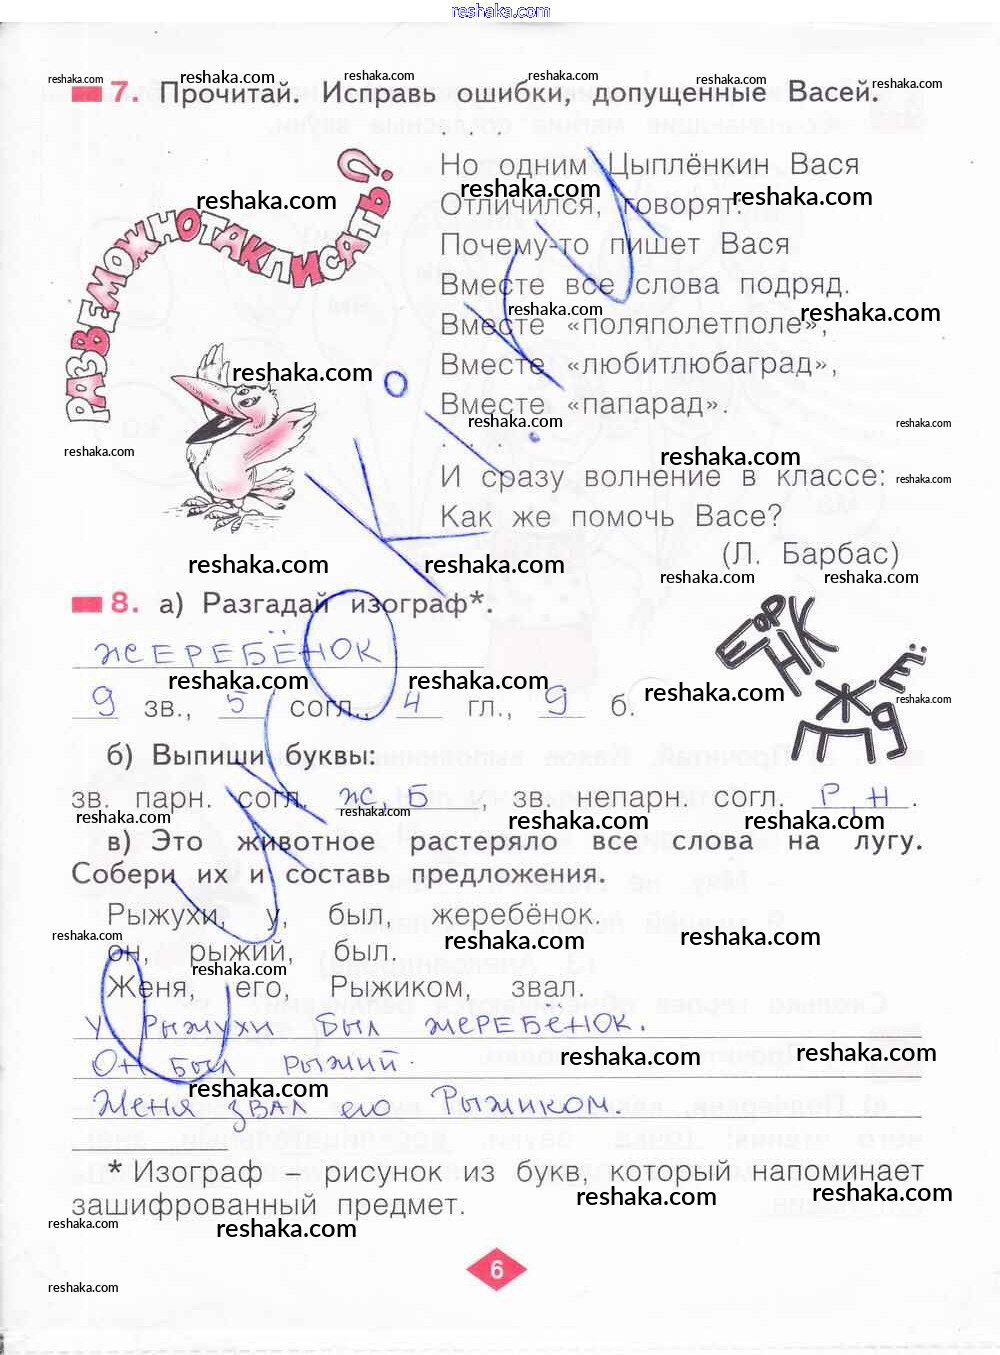 reshaka.com
7. Прочитай. Исправь ошибки, допущенные Васей.
. . .
РАЗВЕМОЖНОТАКПИСАТЬ?
Но одним Цыплёнкин Вася
Отличился, говорят:
Почему-то пишет Вася
Вместе все слова подряд.
Вместе «поляполетполе»,
Вместе «любитлюбаград»,
Вместе «папарад».
. . . .
И сразу волнение в классе:
Как же помочь Васе?
(Л. Барбас)
8. а) Разгадай изограф*.
ЖЕРЕБЁНОК
9 зв., 5 согл., 4 гл., 9 б.
б) Выпиши буквы:
зв. парн. согл. Ж, Б, зв. непарн. согл. Р, Н.
в) Это животное растеряло все слова на лугу.
Собери их и составь предложения.
Рыжухи, у, был, жеребёнок.
он, рыжий, был.
Женя, его, Рыжиком, звал.
У Рыжухи был жеребёнок.
Он был рыжий.
Женя звал его Рыжиком.
* Изограф – рисунок из букв, который напоминает
зашифрованный предмет.
6